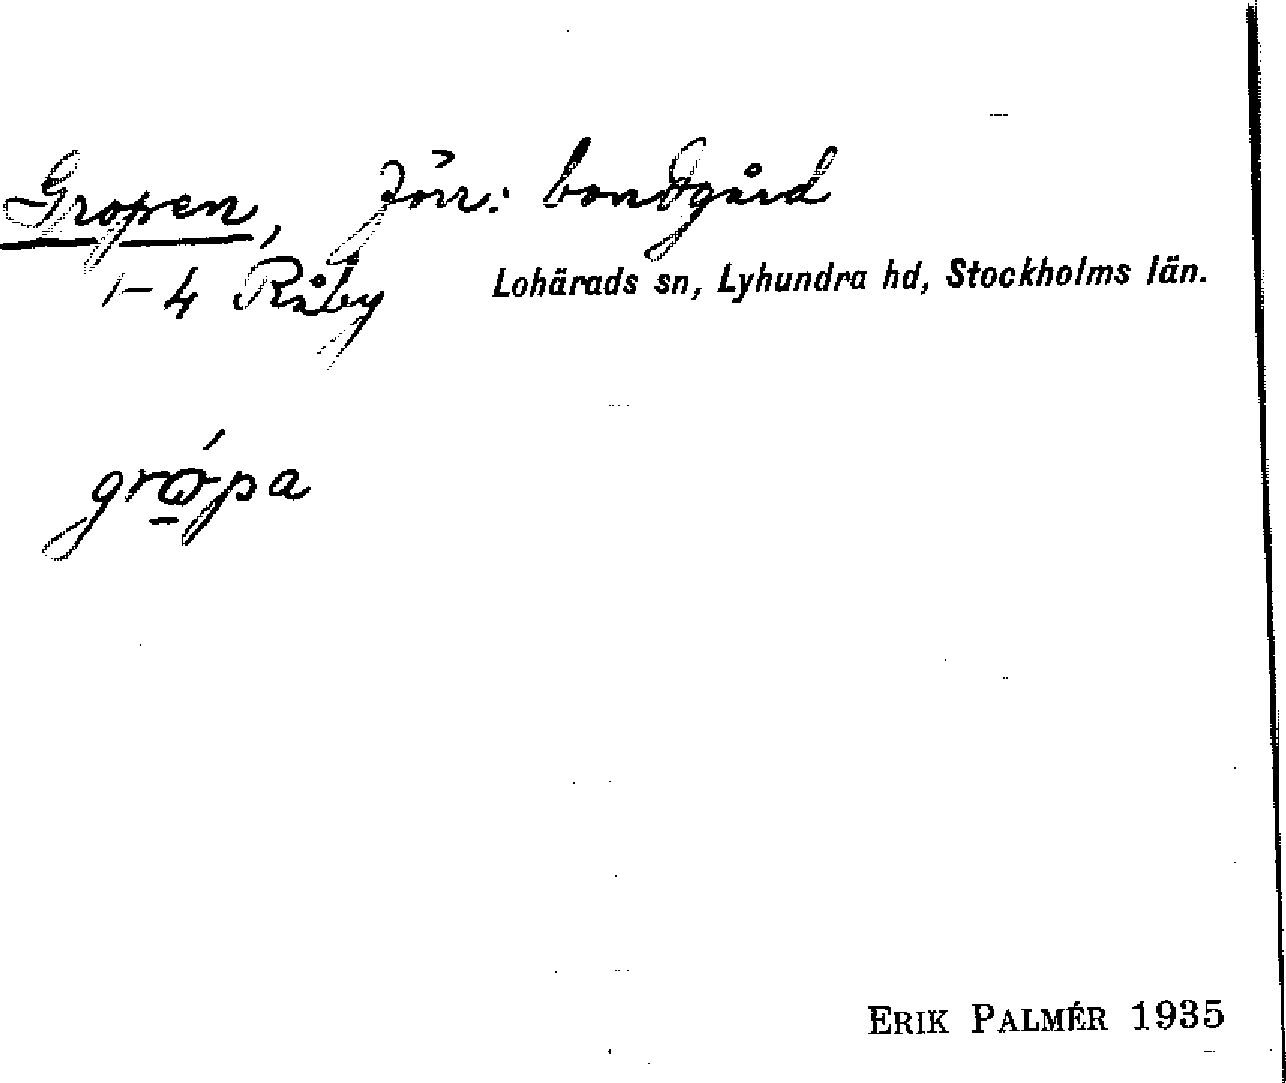 Gropen, förr: bondgård
1-4 Råby Lohärads sn, Lyhundra hd, Stockholms län.
gró̲pa
ERIK PALMÉR 1935